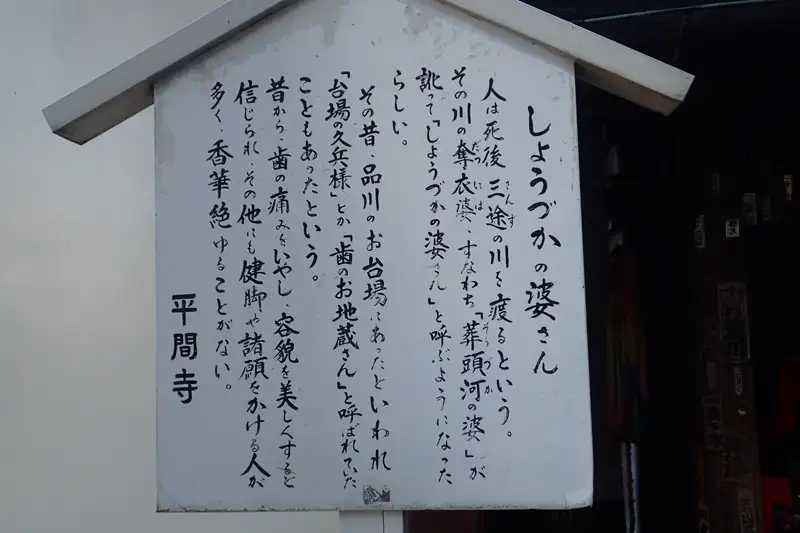 しょうづかの婆さん
人は死後、三途の川を渡るという。
その川の奪衣婆、すなわち「葬頭河の婆」が
訛って「しょうづかの婆さん」と呼ぶようになった
らしい。
その昔、品川のお台場にあったといわれ
「台場の久兵様」とか「歯のお地蔵さん」と呼ばれていた
こともあったという。
昔から、歯の痛みをいやし、容貌を美しくすると
信じられ、その他にも健脚や諸願をかける人が
多く、香華絶ゆることがない。
平間寺